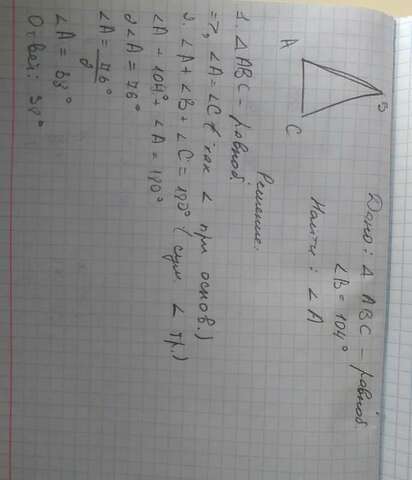 A
B
C
Дано: Δ ABC - равноб
∠B = 104°
Найти: ∠A
Решение:
1. Δ ABC - равноб
=>, ∠A = ∠C (так ∠ при основ.)
2. ∠A + ∠B + ∠C = 180° (сум ∠ тр.)
∠A + 104° + ∠A = 180°
2∠A = 76°
∠A = 76°/2
∠A = 38°
Ответ: 38°